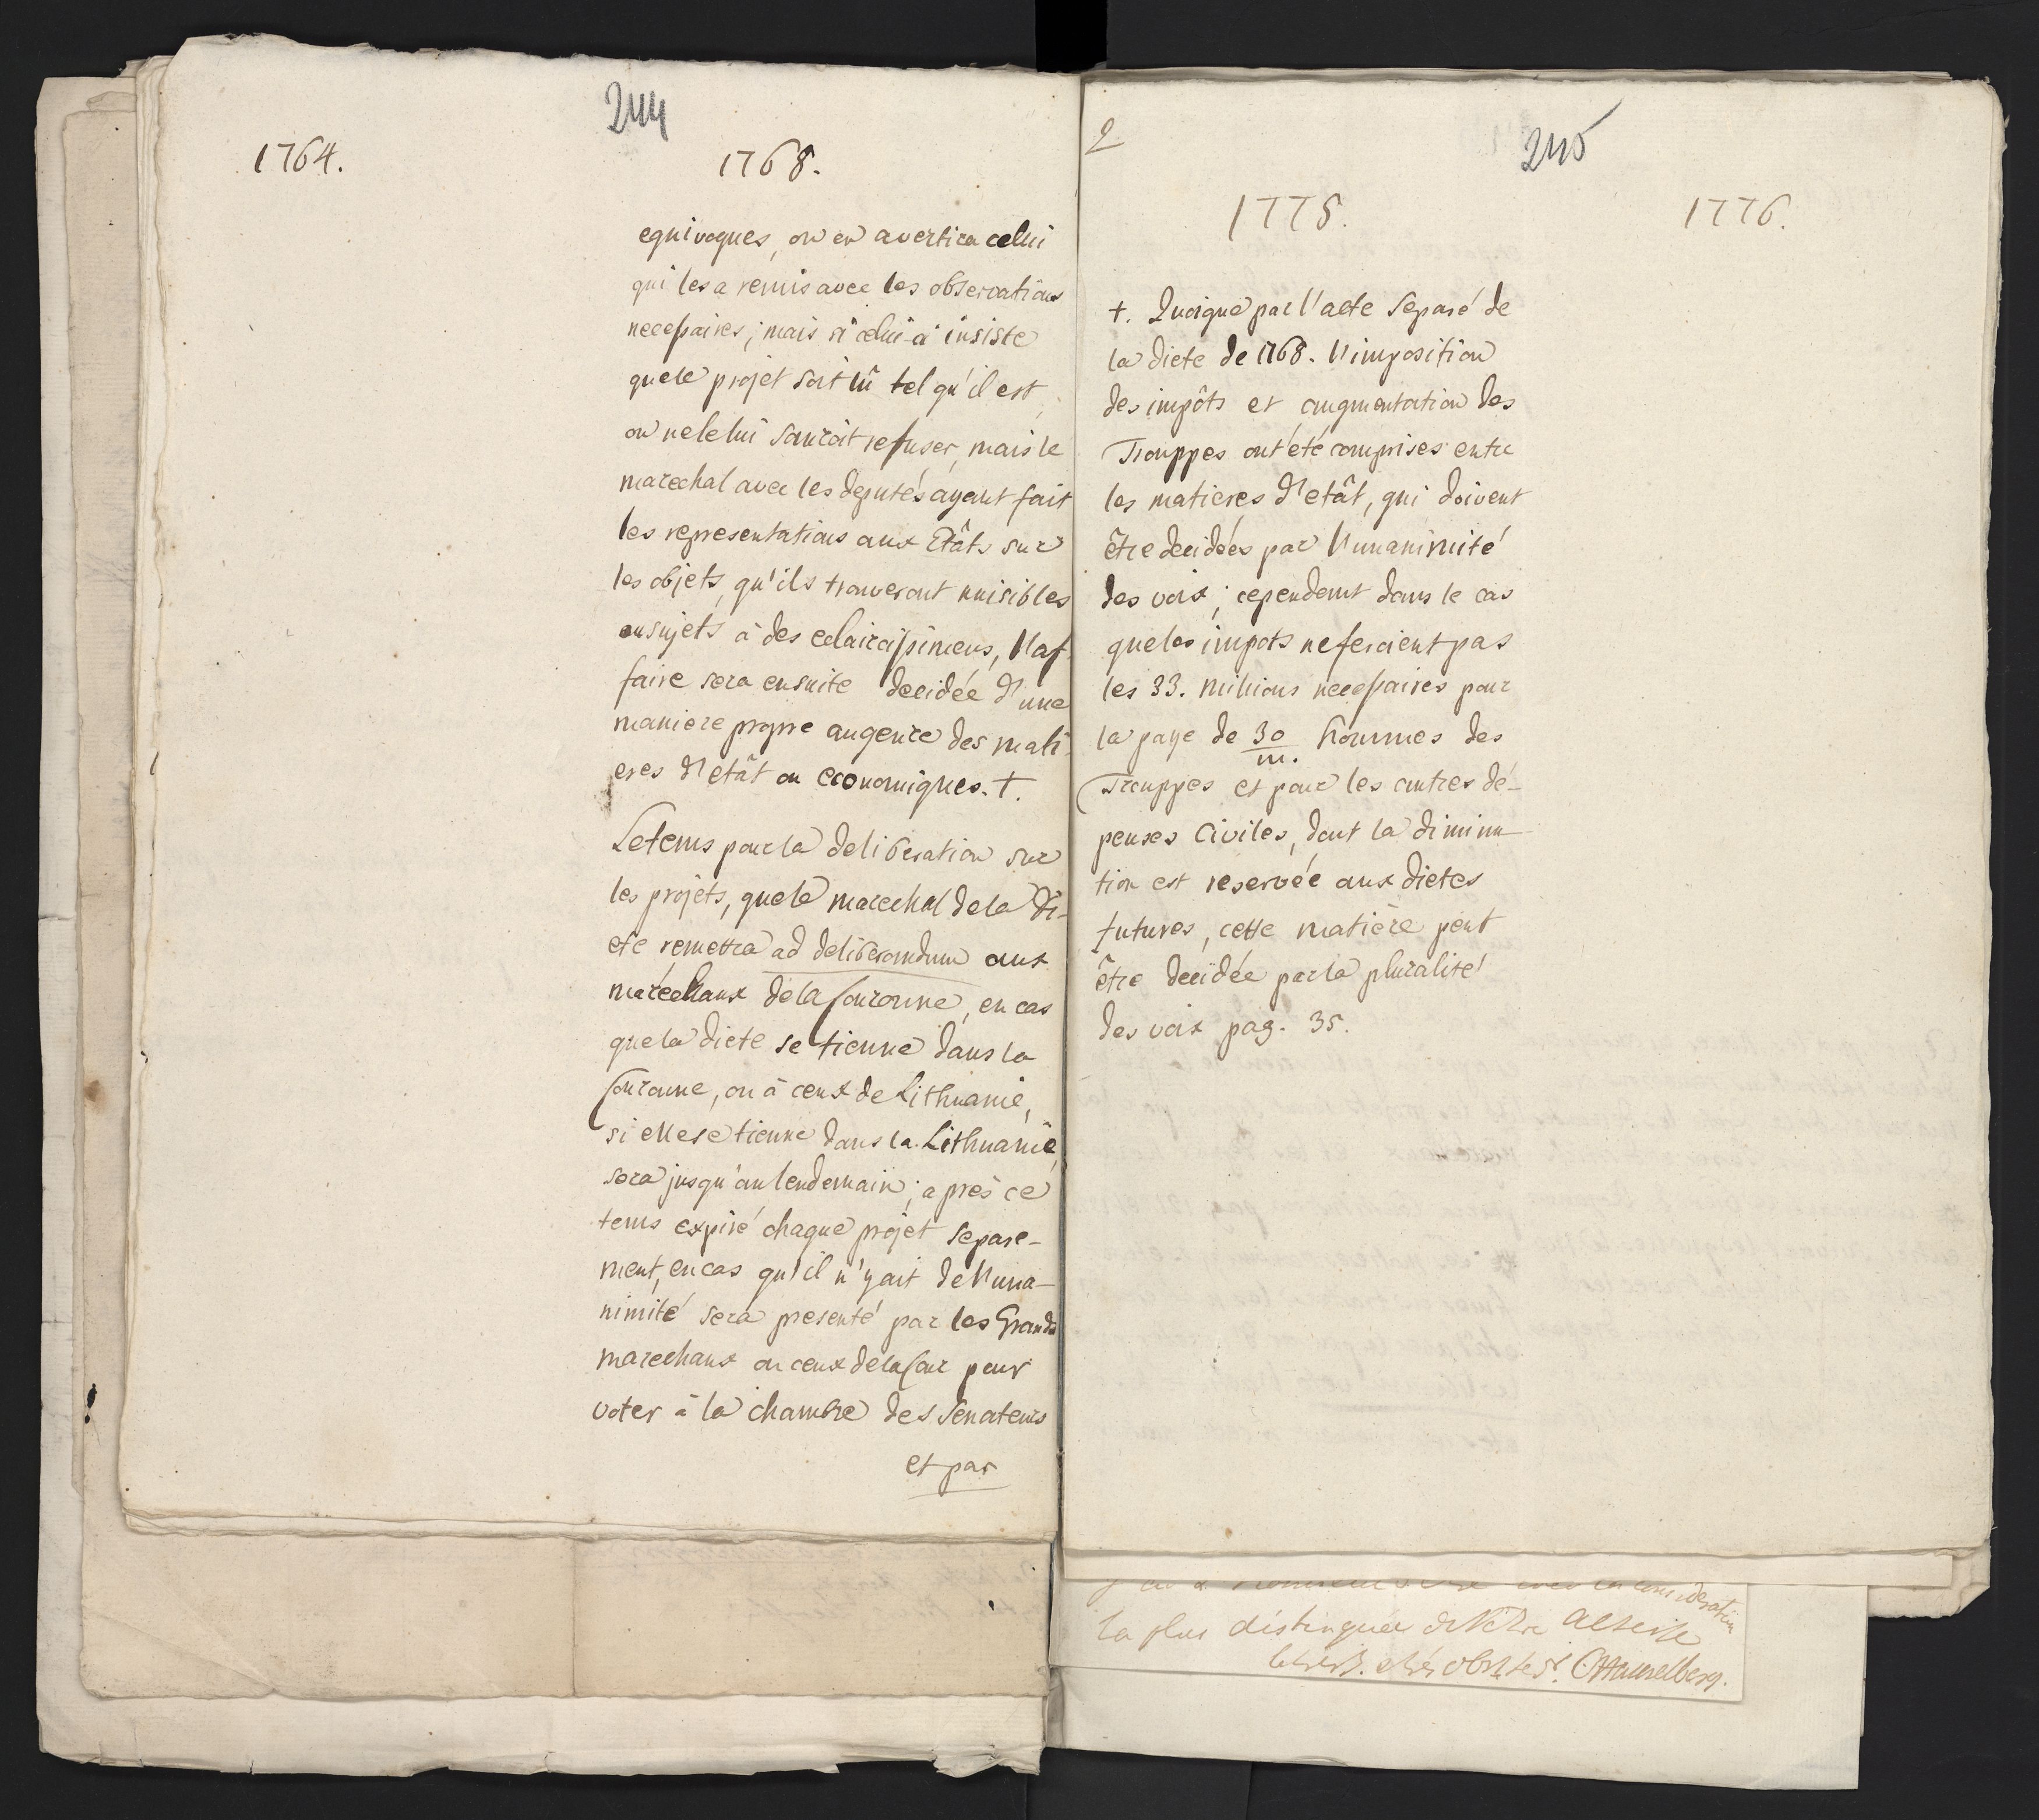 244
1764.
1768.
equivoques, on en avertira celui
qui les a remis avec les observations
necessaires; mais si celui-ci insiste
que le projet soit lû tel qu'il est,
on ne le lui sauroit refuser, mais le
marechal avec les deputés ayant fait
les representations aux Etâts sur
les objets, qu'ils trouveront nuisibles
ou sujets à des eclaircissimens, l'af
faire sera ensuite decidée d'une
maniere propre au genre des mati
eres d'etât ou economiques. +.
Le tems pour la deliberation sur
les projets, que le marechal de la Di-
ete remettra ad deliberandum aux
maréchaux de la Couronne, en cas
que la diete se tienne dans la
Couronne, ou à ceux de Lithuanie,
si elle se tienne dans la Lithuanie,
sera jusqu'au lendemain; après ce
tems expiré chaque projet separe-
ment, en cas qu'il n'y ait de l'una-
nimité sera presenté par les Grands
marechaux ou ceux de la Cour pour
voter à la chambre des Senateurs
et par
2
245
1775.
1776.
+. Quoique par l'acte separé de
la diete de 1768. l'imposition
des impôts et augmentation des
Trouppes ont été comprises entre
les matieres d'etât, qui doivent
être decidées par l'unanimité
des voix; cependent dans le cas
que les impots ne feroient pas
les 33. millions necessaires pour
la paye de 30/m. hommes des
Trouppes et pour les autres dé-
penses Civiles, dont la diminu-
tion est reservée aux dietes
futures, cette matière peut
être decidée par la pluralité
des voix pag. 35.
consideration
la plus distinguée de Vôtre Altesse